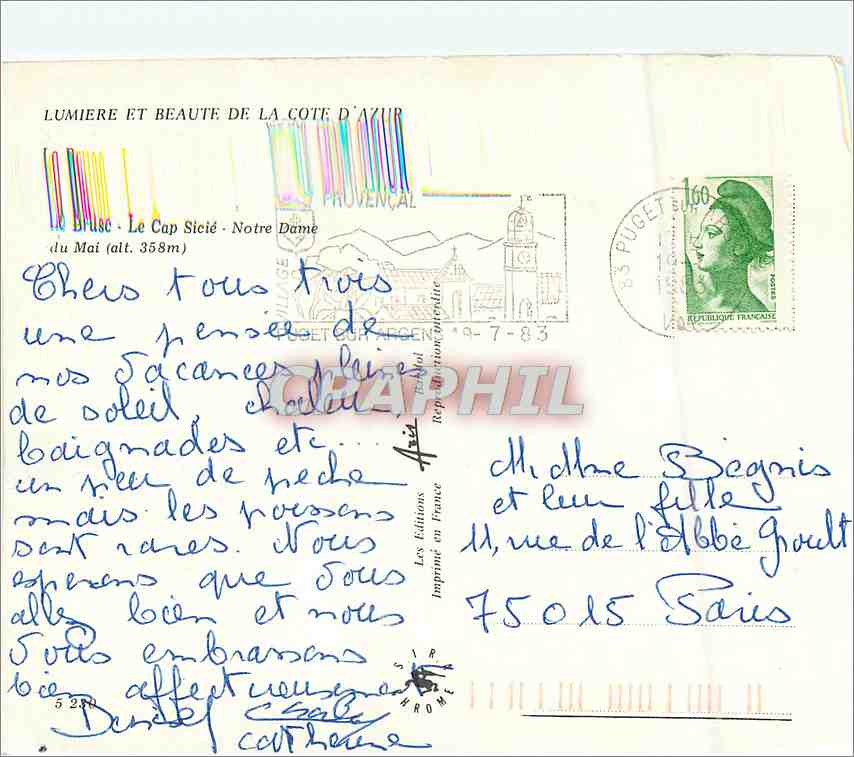 LUMIERE ET BEAUTE DE LA COTE D'AZUR
Le Brusc - Le Cap Sicié - Notre Dame
du Mai (alt. 358m)
Chers tous trois
une pensée de
nos vacances pleines
de soleil, chaleur,
baignades etc....
un peu de peche
mais les poissons
sont rares. Nous
esperons que vous
allez bien et nous
vous embrassons
bien affectueusement
Daniel
catherine
5 230
VILLAGE
PROVENÇAL
PUGET SUR ARGENS
19-7-83
83 PUGET SUR
1,60
POSTES
REPUBLIQUE FRANÇAISE
CPAPHIL
Les Editions Aris Bandol
Imprimé en France Reproduction interdite
SIR
CHROME
M. Mme Bègnis
et leur fille
11, rue de l'Abbé Groult
75015 Paris